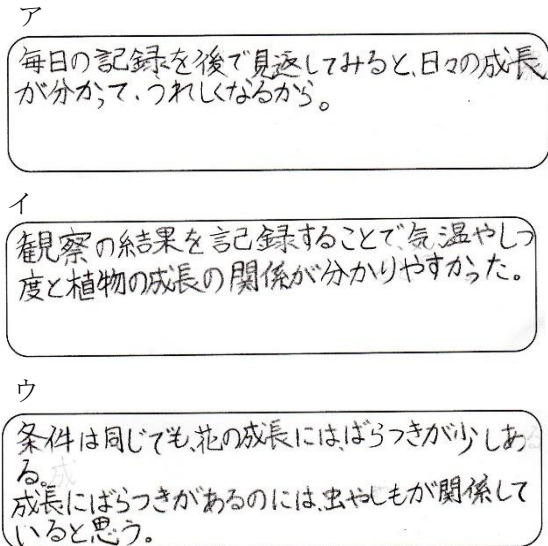 ア
毎日の記録を後で見返してみると、日々の成長
が分かって、うれしくなるから。
イ
観察の結果を記録することで、気温やしつ
度と植物の成長の関係が分かりやすかった。
ウ
条件は同じでも、花の成長には、ばらつきが少しあ
る。
成長にばらつきがあるのには、虫やしもが関係して
いると思う。